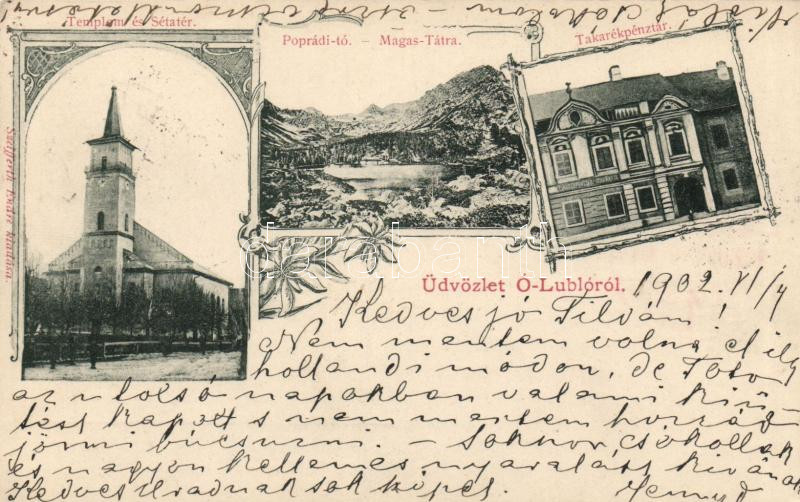 Templom és Sétatér.
Poprádi-tó. – Magas-Tátra.
Takarékpénztár.
kiadása.
darabanth
Üdvözlet Ó-Lublóról. 1902. VI/4
Kedves jó Tilvám!
Nem mentem volna el ily
hollandi módon, de Toto
az utolsó napokban valami kiü-
tést kapott s nem mentem hozzád
jönni búcsuzni. – Sokszor csókollak
és nagyon kellemes nyaralást kivánok
Kedves Uradnak sok képes. Jenny